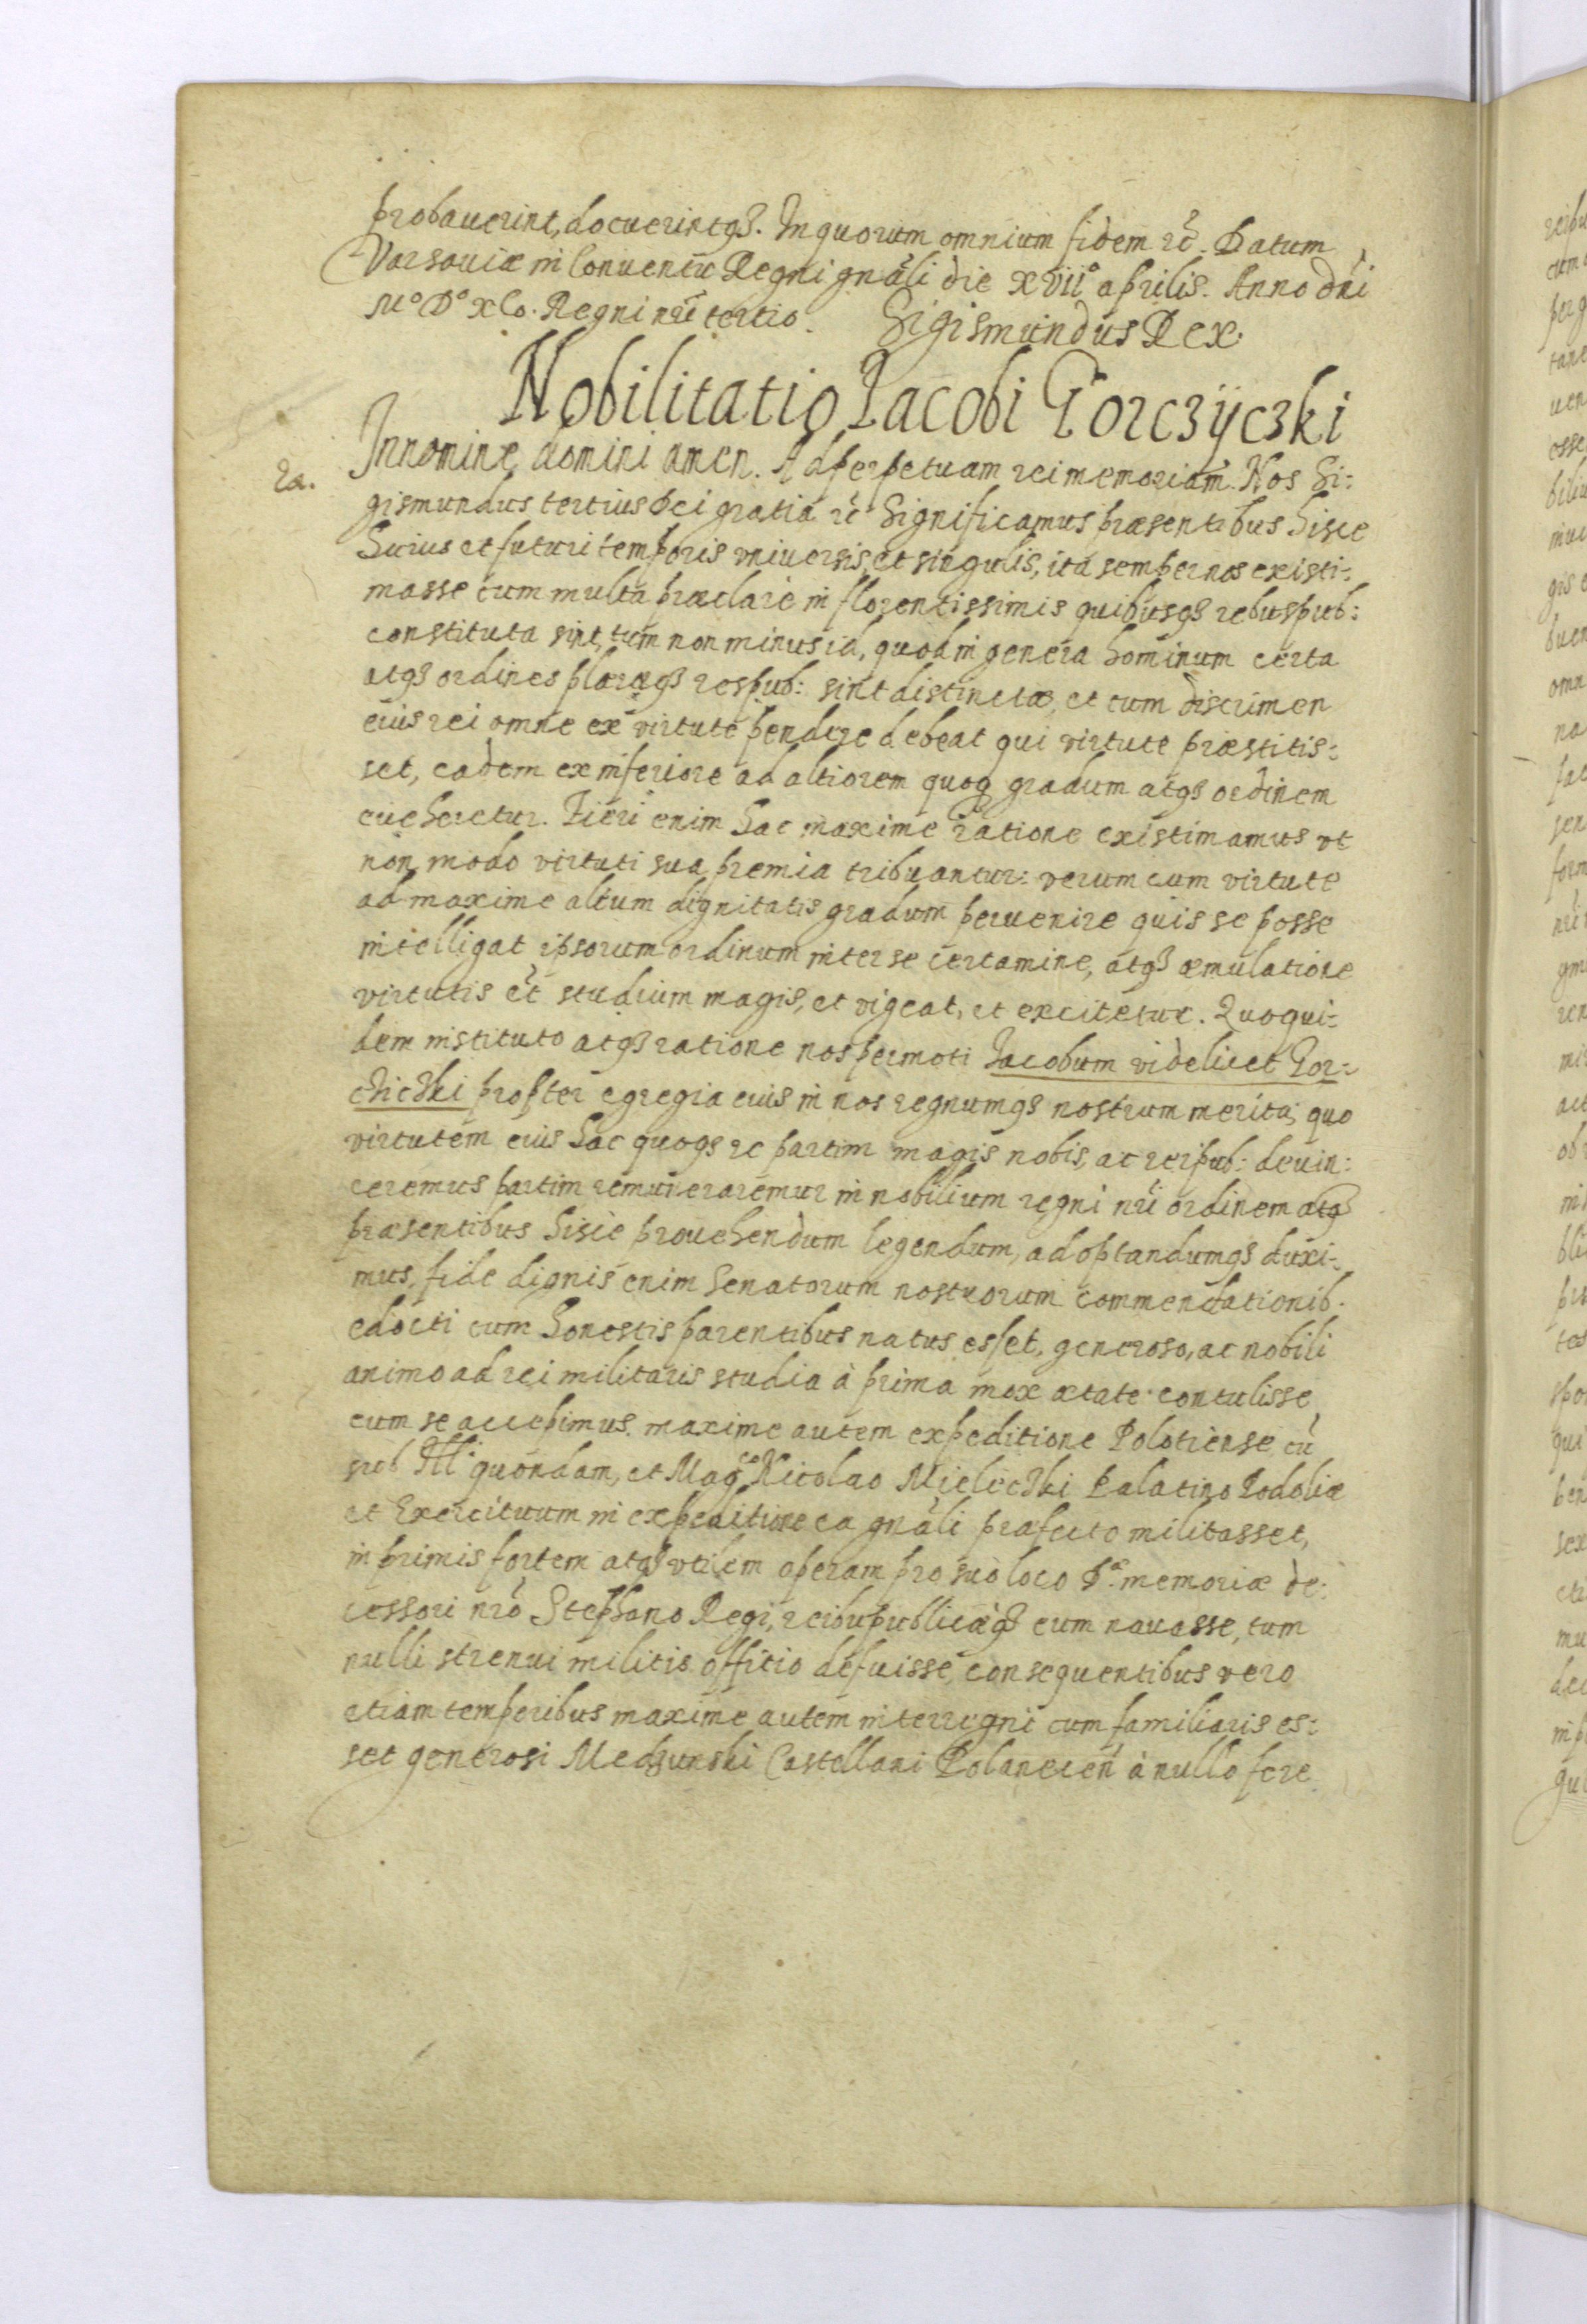 probauerint, docuerintq3. In quorum omnium fidem rc̃. Datum
Varsouiæ in Conuentu Regni gnãli die XVII° aprilis. Anno dñi
M° D° XC°. Regni nr̃i tertio. Sigismundus Rex.
Nobilitatio Iacobi Gorczÿczki
In nomine domini amen. Ad perpetuam rei memoriam. Nos Si:
gismundus tertius Dei gratia rc̃ Significamus præsentibus hisce
huius et futuri temporis vniuersis, et singulis, ita semper nos existi:
masse cum multa præclare in florentissimis quibusq3 rebuspub:
constituta sint, tum non minus id, quod in genera hominum certa
atq3 ordines plæræq3 respub: sint distinctæ, et cum discrimen
eius rei omne ex virtute pendere debeat qui virtute præstitis:
set, eadem ex inferiore ad altiorem quoq gradum atq3 ordinem
eueheretur. Fieri enim hac maxime ratione existimamus vt
non modo virtuti sua premia tribuantur: verum cum virtute
ad maxime altum dignitatis gradum peruenire quis se posse
intelligat ipsorum ordinum inter se certamine, atq3 æmulatione
virtutis et studium magis, et vigeat, et excitetur. Quo qui:
dem instituto atq3 ratione nos permoti Iacobum videlicet Gor:
cziczki propter egregia eius in nos regnumq3 nostrum merita, quo
virtutem eius hac quoq3 re partim magis nobis, ac reipub: deuin:
ceremus partim remuneraremur in nobilium regni nr̃i ordinem atq3
præsentibus hisce prouehendum legendum, adoptandumq3 duxi:
mus, fide dignis enim Senatorum nostrorum commendationib.
edocti cum honestis parentibus natus esset, generoso, ac nobili
animo ad rei militaris studia à prima mox ætate contulisse
eum se accepimus. maxime autem expeditione Polotiense cũ
sub Ill: quondam, et Mag^co Nicolao Mieleczki Palatino Podoliæ
et Exercituum in expeditione ea gnãli præfecto militasset,
in primis fortem atq3 vtilem operam pro suo loco D^æ. memoriæ de:
cessori nr̃o Stephano Regi, reibupublicæq3 eum nauasse, tum
nulli strenui militis offitio defuisse, consequentibus vero
etiam temporibus maxime autem interregni cum familiaris es:
set generosi Medzunski Castellani Polanecen̄ à nullo fere